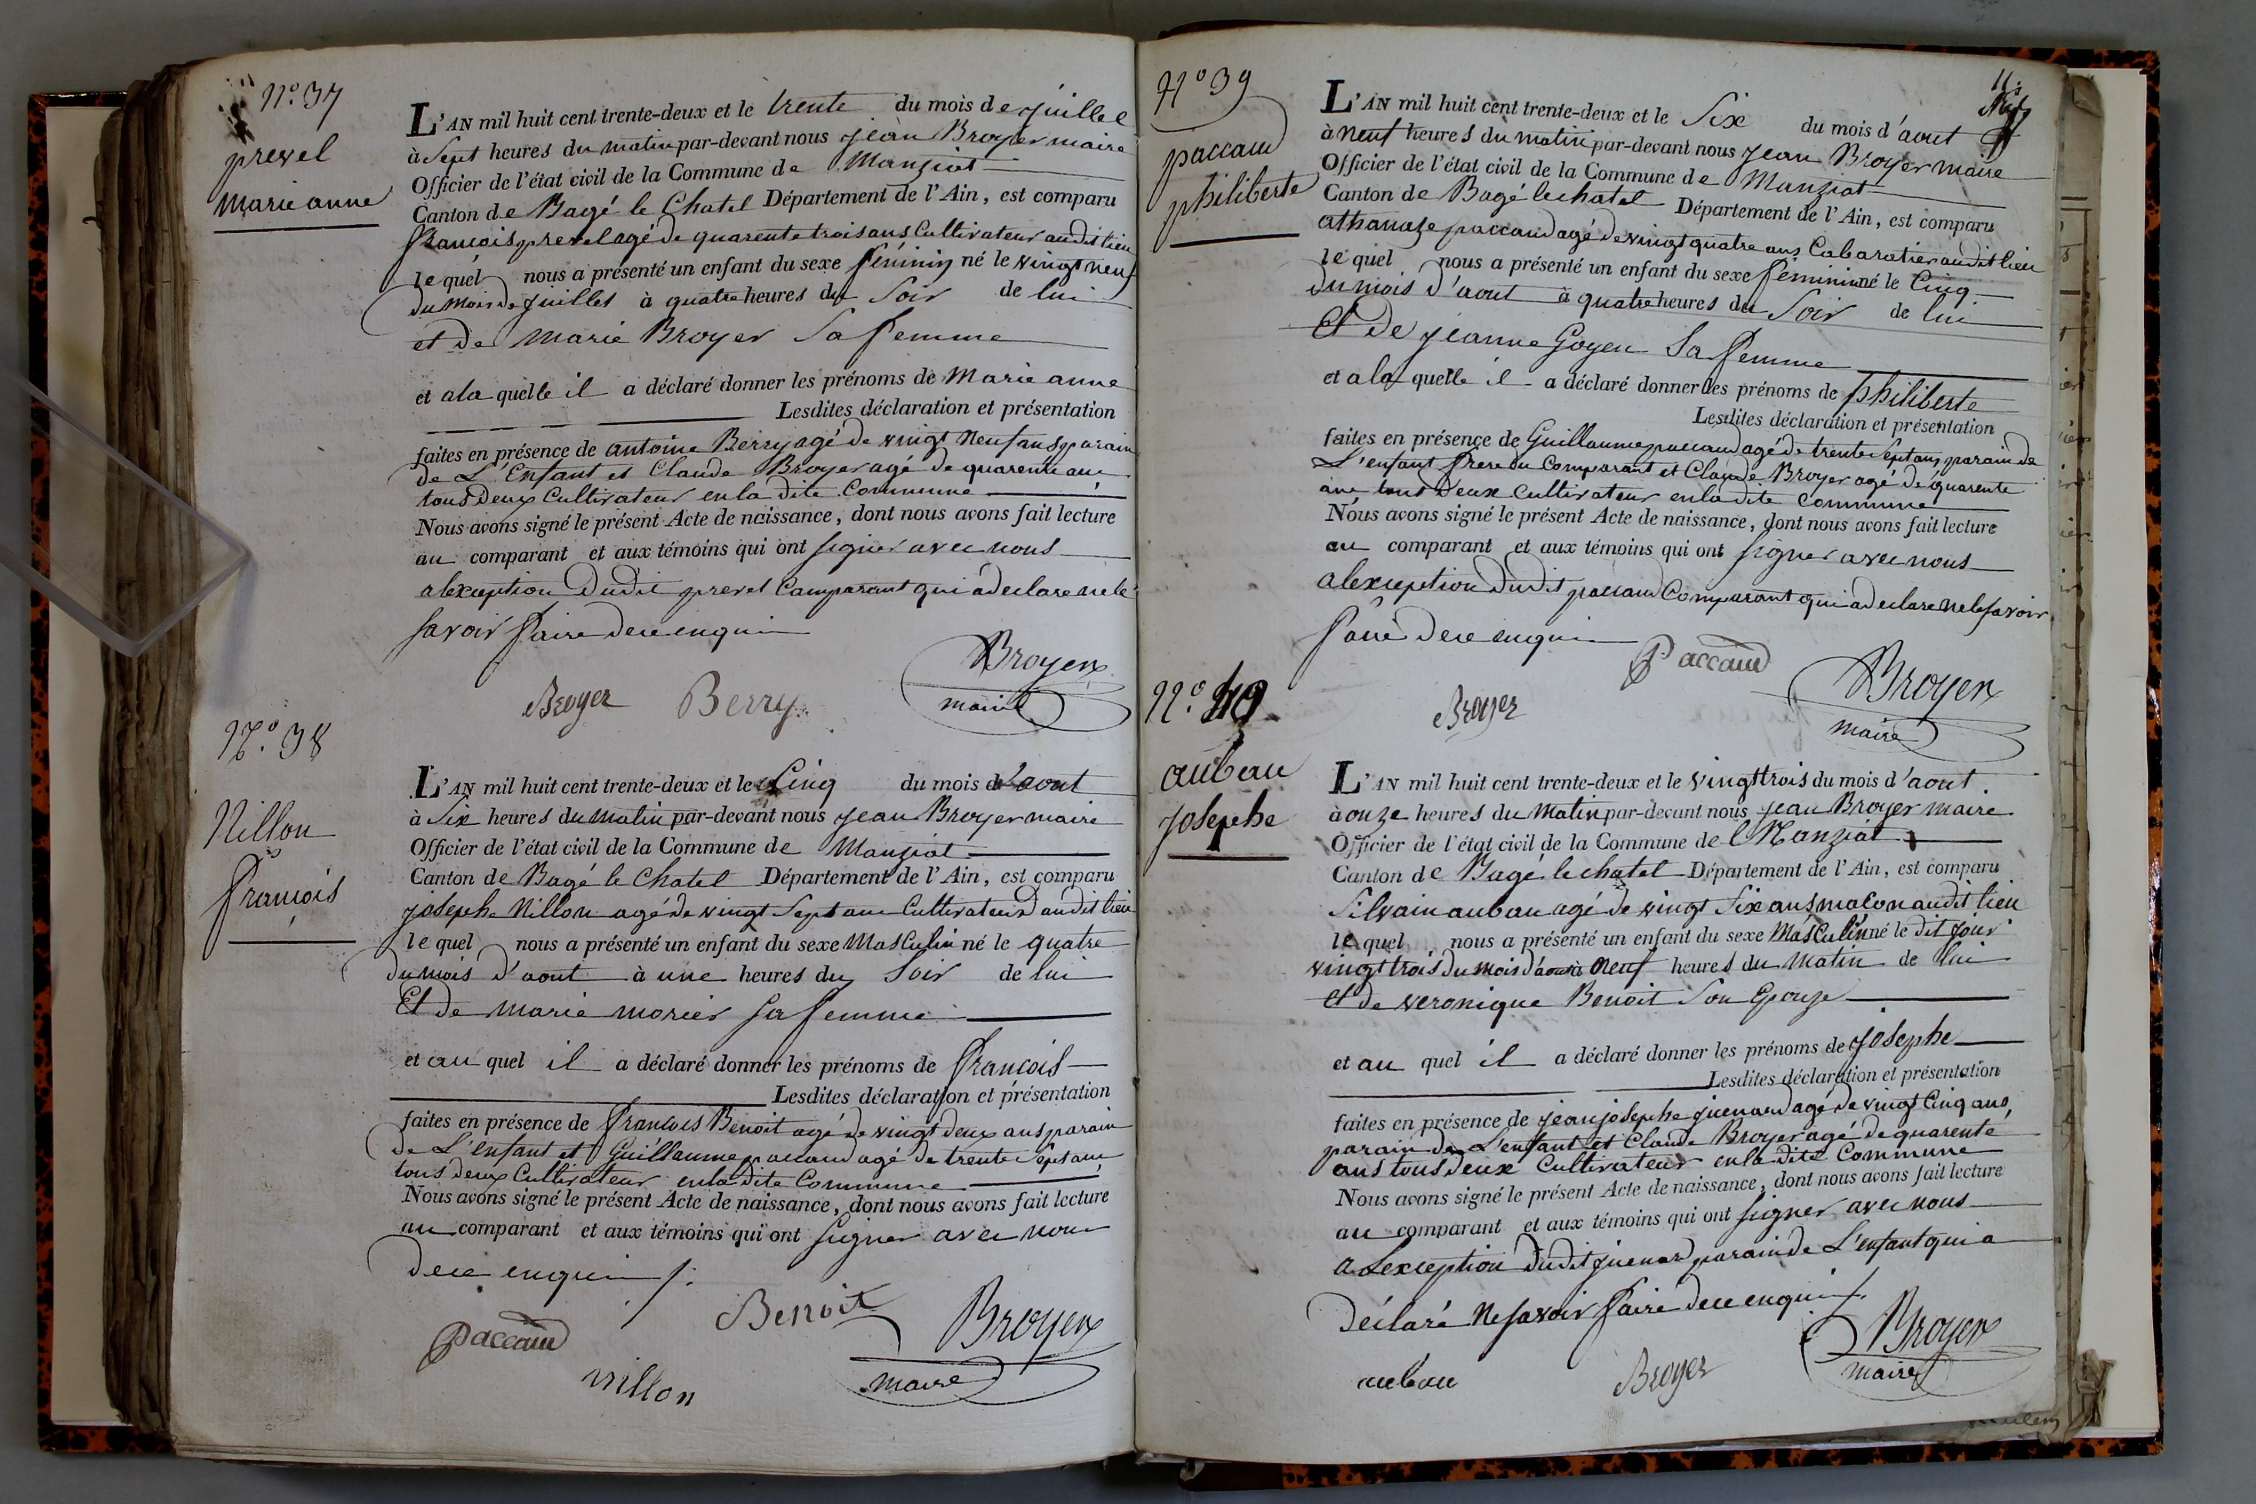 N.o 37
prevel
marie anne
L'AN mil huit cent trente-deux et le trente du mois de juillet
à Sept heures du matin par-devant nous jean Broyer maire
Officier de l'état civil de la Commune de Manziat
Canton de Bagé le Chatel Département de l'Ain, est comparu
francois prevel agé de quarente trois ans Cultivateur audit lieu
le quel nous a présenté un enfant du sexe féminin né le vingt neuf
du mois de juillet à quatre heures du Soir de lui
et de marie Broyer Sa femme
et a la quelle il a déclaré donner les prénoms de Marie anne
Lesdites déclaration et présentation
faites en présence de antoine Berry agé de vingt neuf ans parain
de L'Enfant et Claude Broyer agé de quarente ans
tous Deux Cultivateur en la dite Commune
Nous avons signé le présent Acte de naissance, dont nous avons fait lecture
au comparant et aux témoins qui ont signer avec nous
a lexception Dudit prevel Comparant qui a declare ne le
savoir faire de ce enquis
Broyer Berry Broyer
maire
N.o 38
Nillon
francois
L'AN mil huit cent trente-deux et le Cinq du mois d'aout
à Six heures du matin par-devant nous jean Broyer maire
Officier de l'état civil de la Commune de Manziat
Canton de Bagé le Chatel Département de l'Ain, est comparu
josephe Nillon agé de vingt Sept ans Cultivateur audit lieu
le quel nous a présenté un enfant du sexe Masculin né le quatre
du mois d'aout à une heures du Soir de lui
Et de marie morier sa femme
et au quel il a déclaré donner les prénoms de francois
Lesdites déclaration et présentation
faites en présence de francois Benoit agé de vingt deux ans parain
de L'enfant et Guillaume paccaud agé de trente Sept ans
tous deux Cultivateur en la dite Commune
Nous avons signé le présent Acte de naissance, dont nous avons fait lecture
au comparant et aux témoins qui ont signer avec nous
de ce enquis
Paccaud Benoit Broyer
nillon maire
N.o 39
paccaud
philiberte
L'AN mil huit cent trente-deux et le Six du mois d'aout
à neuf heures du matin par-devant nous jean Broyer maire
Officier de l'état civil de la Commune de Manziat
Canton de Bagé le chatel Département de l'Ain, est comparu
athanaze paccaud agé de vingt quatre ans Cabaratier audit lieu
le quel nous a présenté un enfant du sexe féminin né le Cinq
du mois d'aout à quatre heures du Soir de lui
Et de jeanne Goyeu Sa femme
et a la quelle il a déclaré donner les prénoms de philiberte
Lesdites déclaration et présentation
faites en présence de Guillaume paccaud agé de trente Sept ans parain de
L'enfant frere du Comparant et Claude Broyer agé de quarente
ans tous Deux Cultivateur en la dite Commune
Nous avons signé le présent Acte de naissance, dont nous avons fait lecture
au comparant et aux témoins qui ont signer avec nous
a lexception Dudit paccaud Comparant qui a declare ne le savoir
faire de ce enquis
Paccaud
Broyer Broyer
maire
N.o 40
aubau
josephe
L'AN mil huit cent trente-deux et le vingttrois du mois d'aout
à onze heures du Matin par-devant nous jean Broyer maire
Officier de l'état civil de la Commune de Manziat
Canton de Bagé le chatel Département de l'Ain, est comparu
Silvain aubau agé de vingt Six ans macon audit lieu
le quel nous a présenté un enfant du sexe Masculin né le dit jour
vingt trois du mois d'aout à neuf heures du Matin de lui
et de veronique Benoit Son Epouze
et au quel il a déclaré donner les prénoms de josephe
Lesdites déclaration et présentation
faites en présence de jean josephe juenard agé de vingt Cinq ans,
parain de L'enfant et Claude Broyer agé de quarente
ans tous Deux Cultivateur en la dite Commune
Nous avons signé le présent Acte de naissance, dont nous avons fait lecture
au comparant et aux témoins qui ont signer avec nous
a Lexception Dudit juenard parain de L'enfant qui a
Déclaré Ne savoir faire de ce enquis
aubau Broyer Broyer
maire